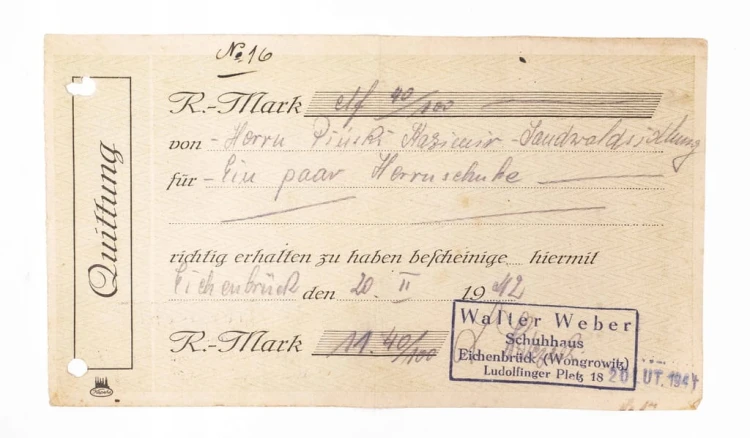 No. 16
R.-Mark elf 40/100
von - Herrn Piński Kazimir - Sandwaldsidlung
für - Ein paar Herrnschuhe
richtig erhalten zu haben bescheinige hiermit
Eichenbrück den 20. II 1942
R.-Mark 11.40/100
Quittung
Walter Weber
Schuhhaus
Eichenbrück (Wongrowitz)
Ludolfinger Pletz 18
20 LUT. 194